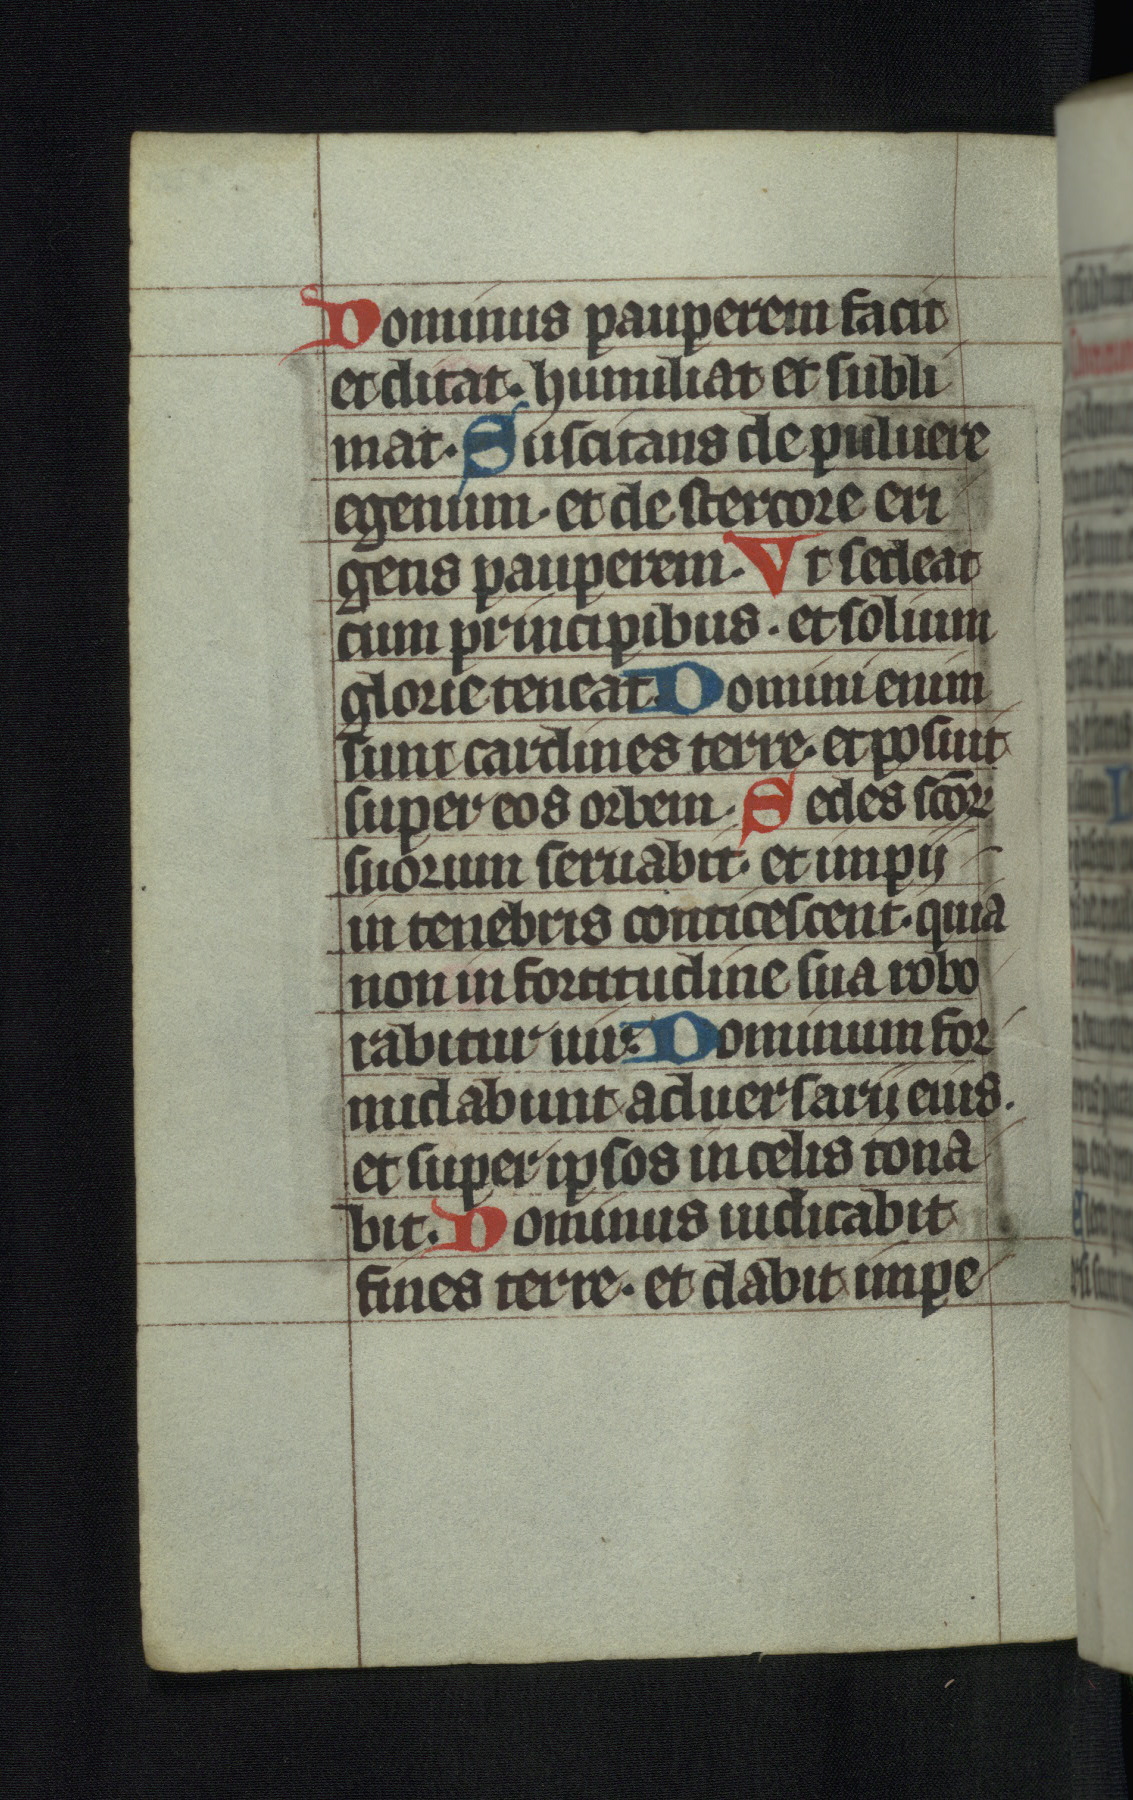 Dominus pauperem facit
et ditat. humiliat et subli
mat. Suscitans de puluere
egenum. et de stercore eri
gens pauperem. Vt sedeat
cum principibus. et solium
glorie teneat. Domini enim
sunt cardines terre. et posuit
super eos orbem. Sedes scōꝝ
suorum seruabit. et impij
in tenebris conticescent. quia
non in fortitudine sua robo
rabitur uir. Dominum for
midabunt aduersarij eius.
et super ipsos in celis tona
bit. Dominus iudicabit
fines terre. et dabit impe